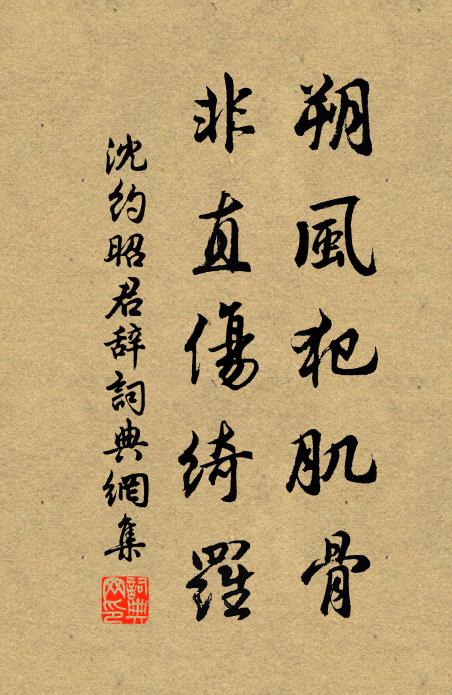 朔風犯肌骨
非直傷綺羅
沈約昭君辞詞典網集
詞典網印